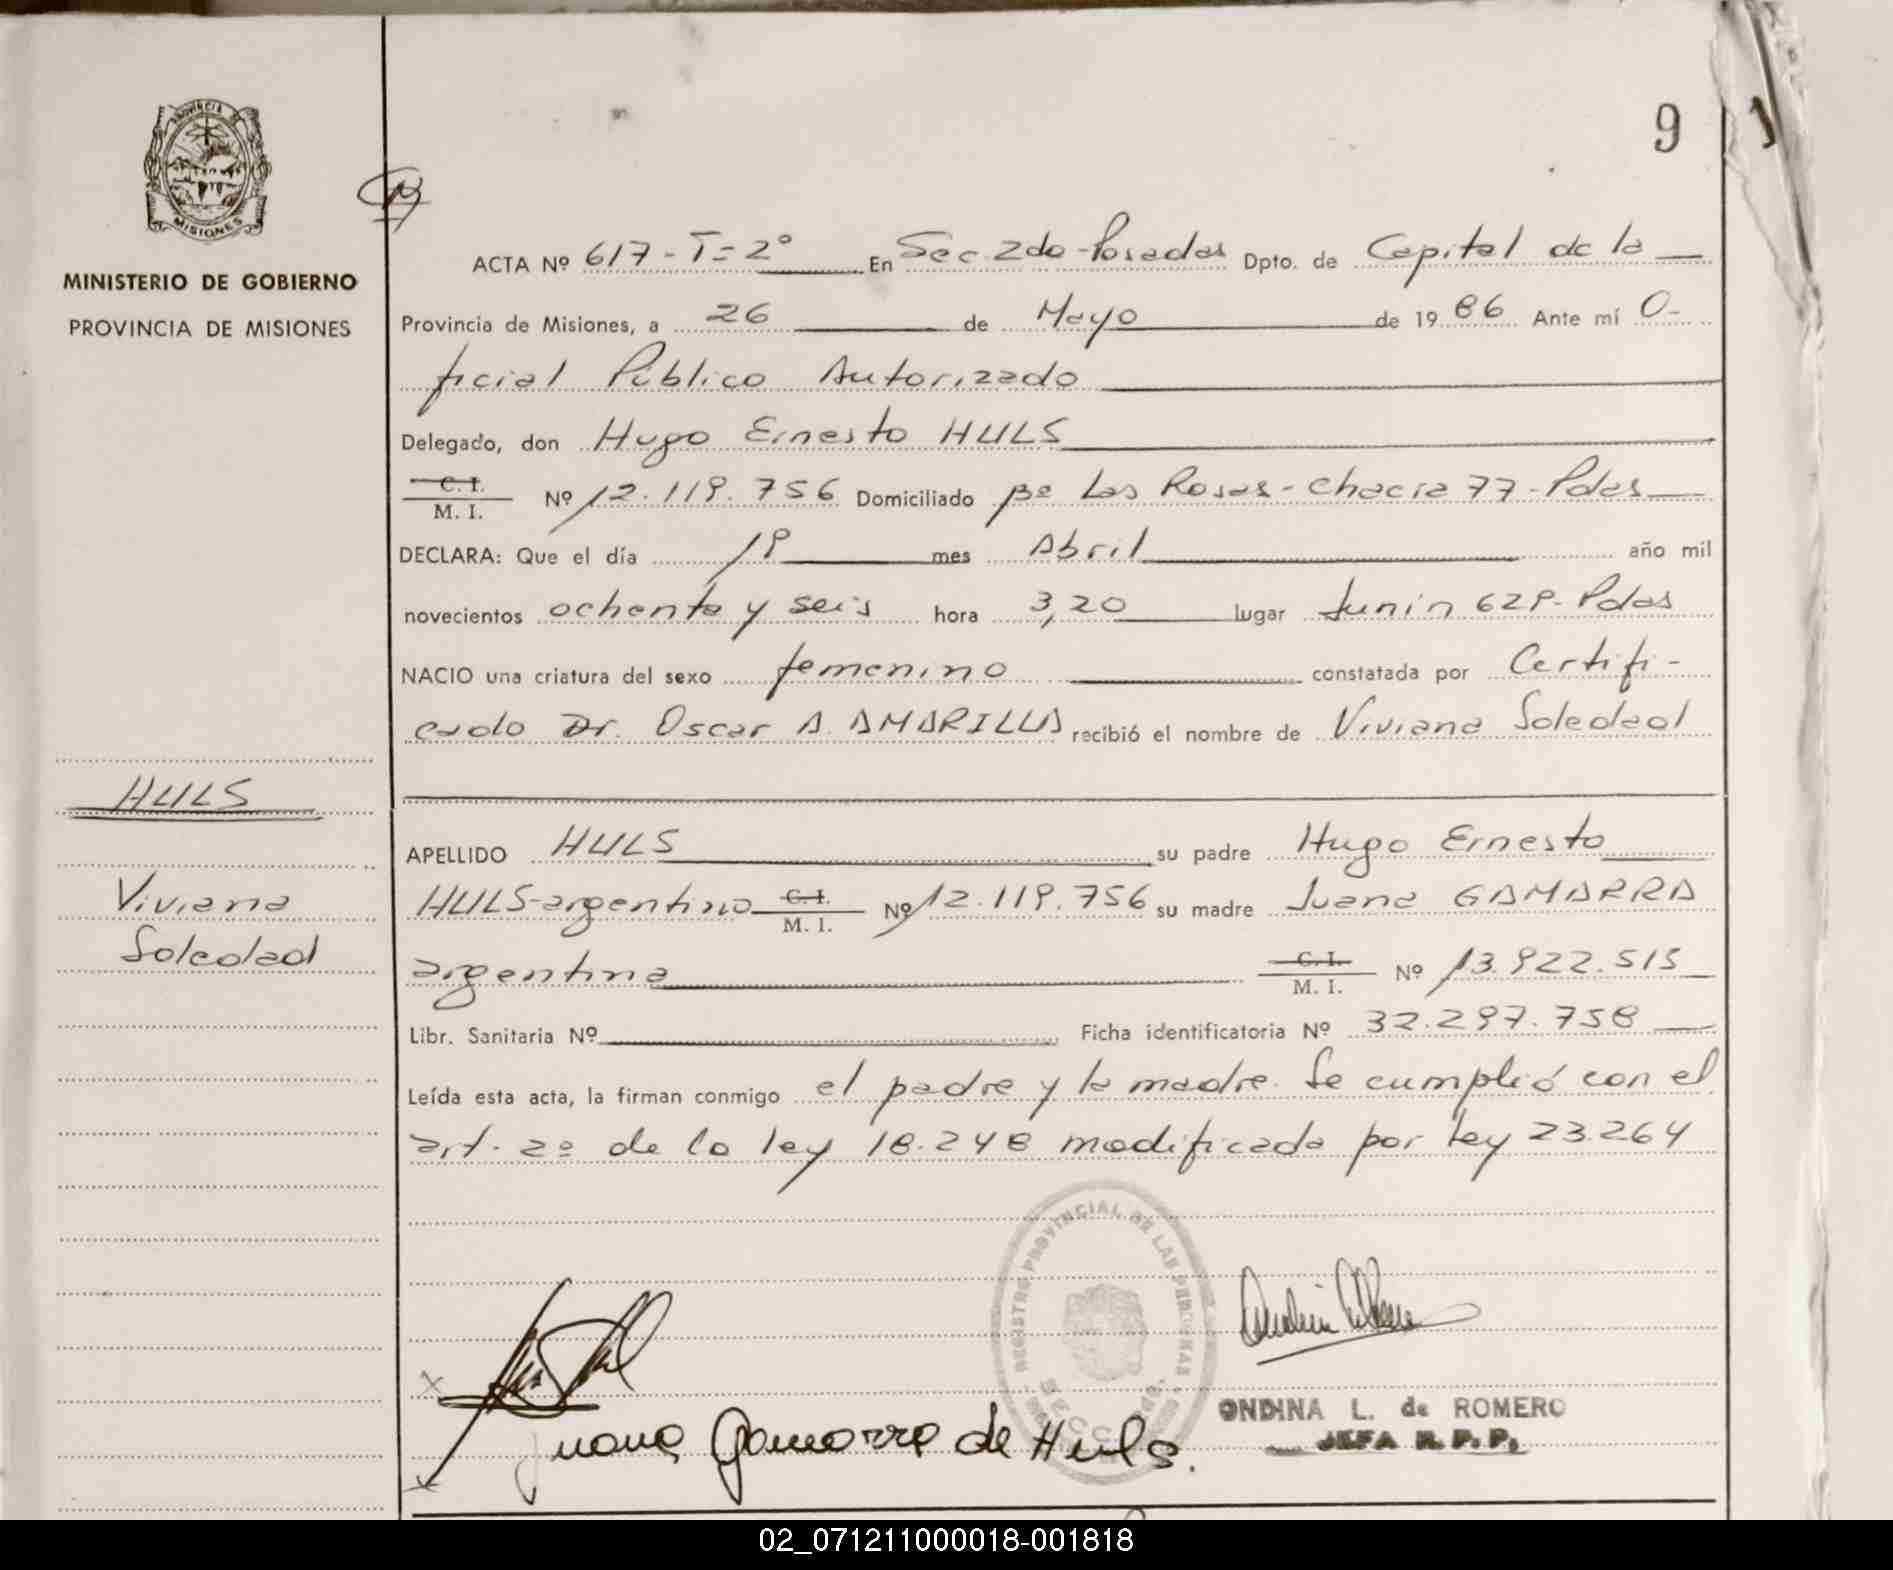 PROVINCIA DE
MISIONES
MINISTERIO DE GOBIERNO
PROVINCIA DE MISIONES
9
ACTA Nº 617 - T= 2º En Sec. 2da - Posadas Dpto. de Capital de la
Provincia de Misiones, a 26 de Mayo de 1986 Ante mí O-
ficial Público Autorizado
Delegado, don Hugo Ernesto HULS
C. I.
M. I. Nº 12.119.756 Domiciliado Bº Las Rosas - Chacra 77 - Pdas
DECLARA: Que el día 19 mes Abril año mil
novecientos ochenta y seis hora 3,20 lugar Junín 629 - Pdas
NACIO una criatura del sexo femenino constatada por Certifi-
cado Dr. Oscar A. AMARILLA recibió el nombre de Viviana Soledad
HULS
Viviana
Soledad
APELLIDO HULS su padre Hugo Ernesto
HULS-argentino C. I. M. I. Nº 12.119.756 su madre Juana GAMARRA
argentina C. I. M. I. Nº 13.922.515
Libr. Sanitaria Nº Ficha identificatoria Nº 32.297.758
Leída esta acta, la firman conmigo el padre y la madre. Se cumplió con el
art. 2º de la ley 18.248 modificada por ley 23.264
REGISTRO PROVINCIAL DE LAS PERSONAS
Juana Gamarra de Huls.
ONDINA L. de ROMERO
JEFA R. P. P.
02_071211000018-001818